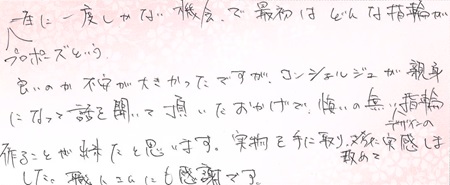 一生に一度しかない機会で最初はどんな指輪が
プロポーズという
良いのか不安が大きかったですが、コンシェルジュが親身
になって話を聞いて頂いたおかげで、悔いの無い指輪
デザインの
作ることが出来たと思います。実物を手に取り、実感しま
改めて
した。職人さんにも感謝です。